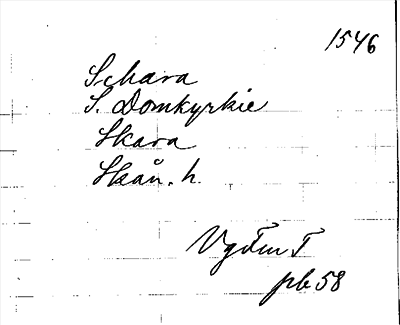 1546
Schara
S. Domkyrkie
Skara
Skån. h.
VgFmT
pb 58